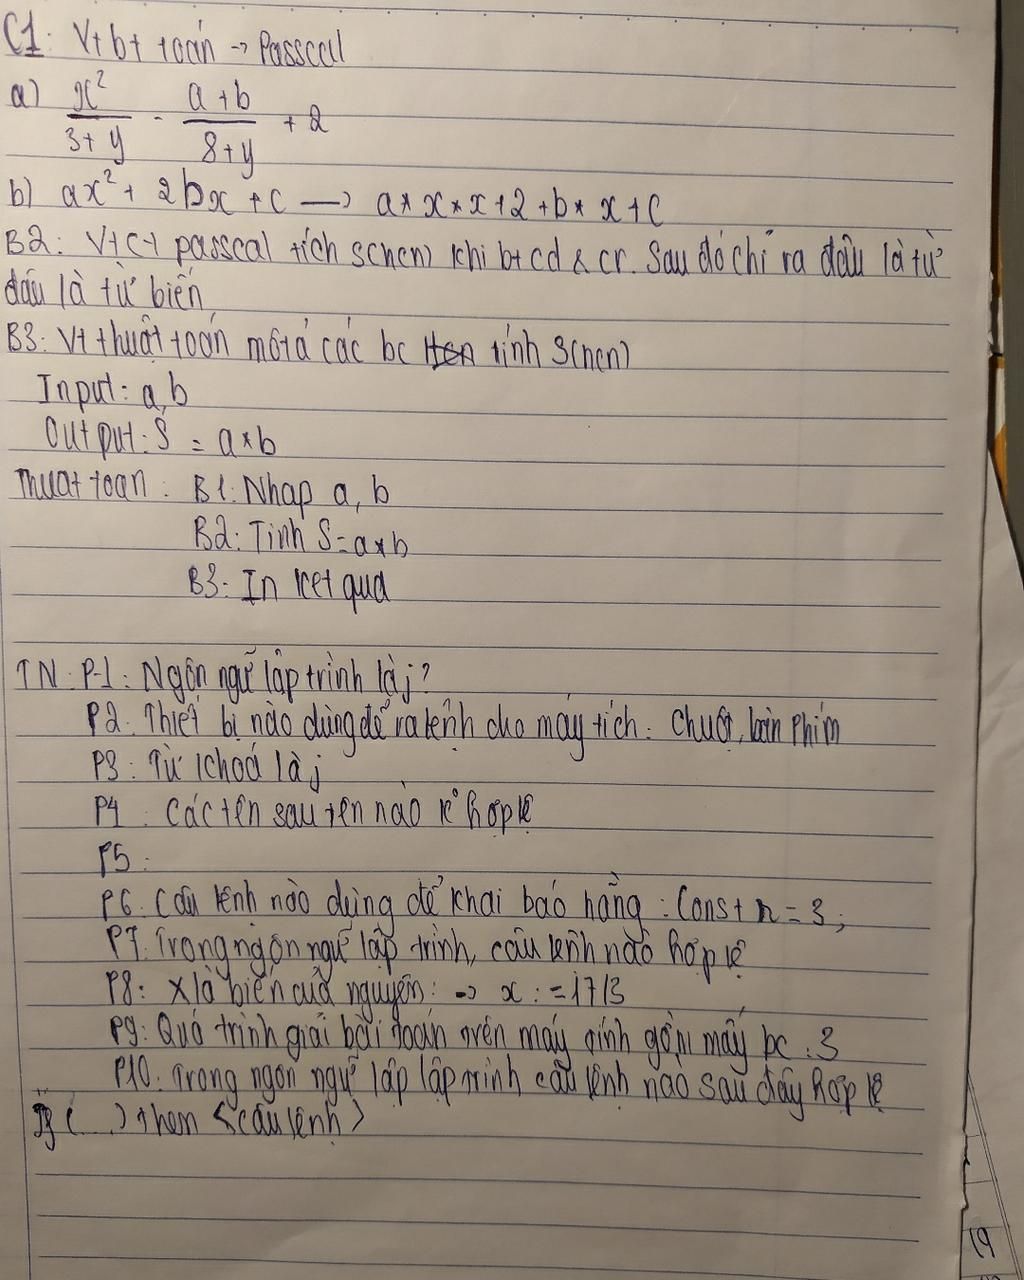 C1: Vt bt toán → Passcal
a) x²/3+y - a+b/8+y + 2
b) ax² + 2bx + c → a*x*x+2+b*x+c
B2: Vtct passcal tích S(hcn) khi bt cd & cr. Sau đó chỉ ra đâu là từ
đâu là từ biến
B3: Vt thuật toán mô tả các bc tính S(hcn)
Input: a,b
Output: S = a*b
Thuat toan: B1: Nhap a, b
B2: Tinh S=a*b
B3: In ket qua
TN: P-1: Ngôn ngữ lập trình là j?
P2: Thiết bị nào dùng để ra lệnh cho máy tích: Chuột, bàn phím
P3: Từ khoá là j
P4: Các tên sau tên nào k° hợp lệ
P5:
P6: Câu lệnh nào dùng để khai báo hằng: Const n = 3;
P7: Trong ngôn ngữ lập trình, câu lệnh nào hợp lệ
P8: X là biến của nguyên: → x:=17/3
P9: Quá trình giải bài toán trên máy tính gồm mấy bc: 3
P10: Trong ngôn ngữ lập lập trình câu lệnh nào sau đây hợp lệ
If (   ) them <câu lệnh>
19